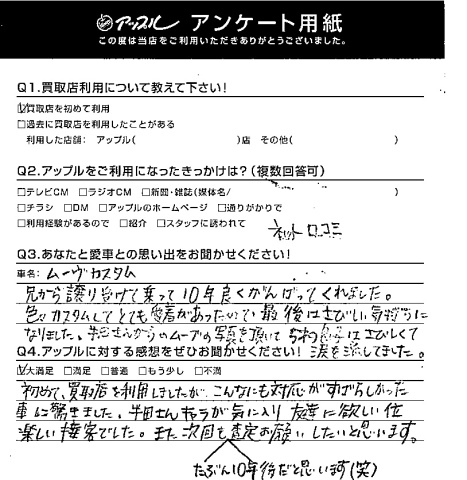 アップル アンケート用紙
この度は当店をご利用いただきありがとうございました。
Q1.買取店利用について教えて下さい!
☑買取店を初めて利用
□過去に買取店を利用したことがある
利用した店舗: アップル( )店 その他( )
Q2.アップルをご利用になったきっかけは?(複数回答可)
□テレビCM □ラジオCM □新聞・雑誌(媒体名/ )
□チラシ □DM □アップルのホームページ □通りがかりで
□利用経験があるので □紹介 □スタッフに誘われて
ネット口コミ
Q3.あなたと愛車との思い出をお聞かせください!
車名: ムーヴカスタム
兄から譲り受けて乗って10年良くがんばってくれました。
色々カスタムしてとても愛着があったので最後はさびしい気持ちに
なりました。牛田さんからのムーブの写真を頂いて さびしくて
涙を流してました。
Q4.アップルに対する感想をぜひお聞かせください!
☑大満足 □満足 □普通 □もう少し □不満
初めて、買取店を利用しましたが、こんなにも対応がすばらしかった
事に驚きました。牛田さんキャラが気に入り 友達に欲しい位
楽しい接客でした。また次回も査定お願いしたいと思います。
たぶん10年後だと思います(笑)